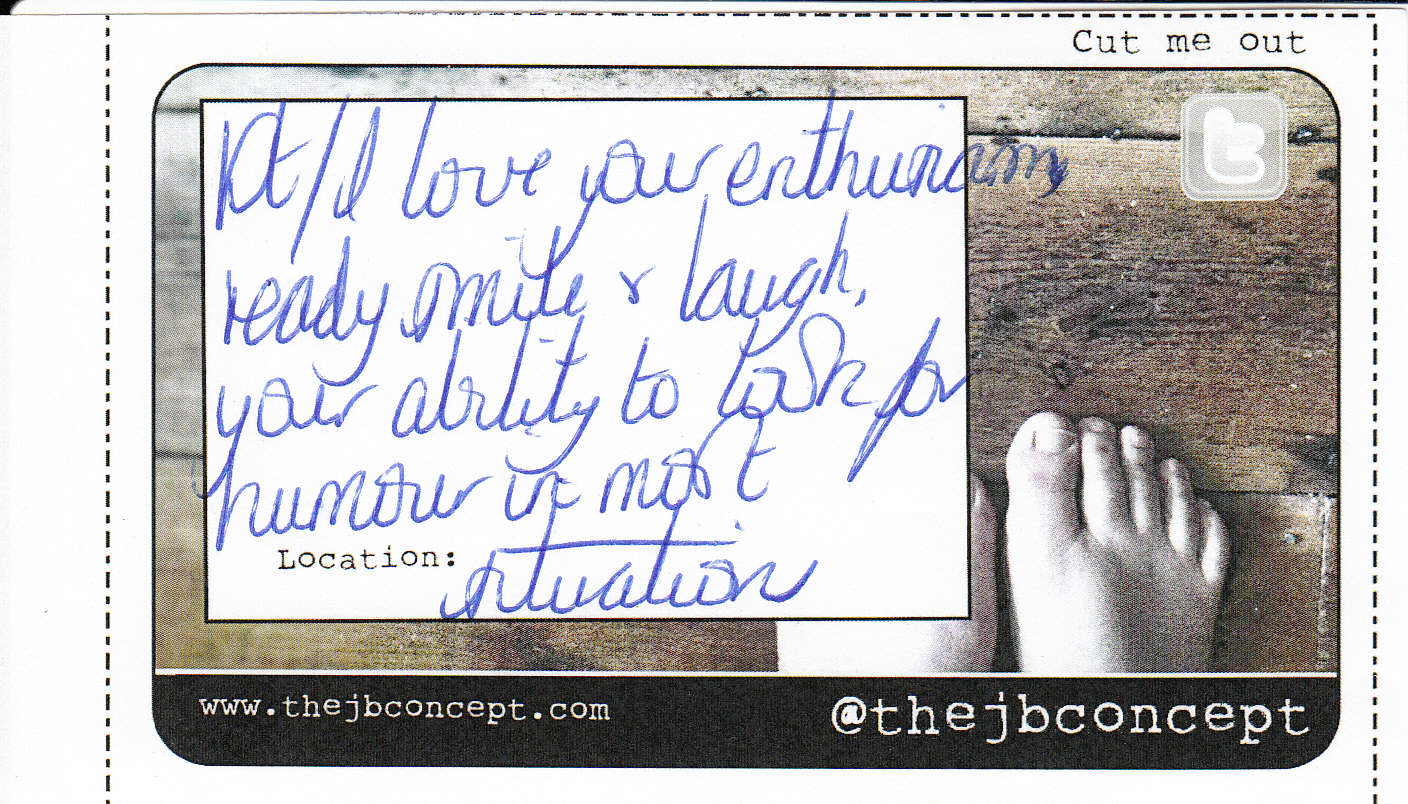 Cut me out
I love your enthusiasm,
ready smile & laugh,
your ability to look for
humour in most
Location:
situation
www.thejbconcept.com
@thejbconcept